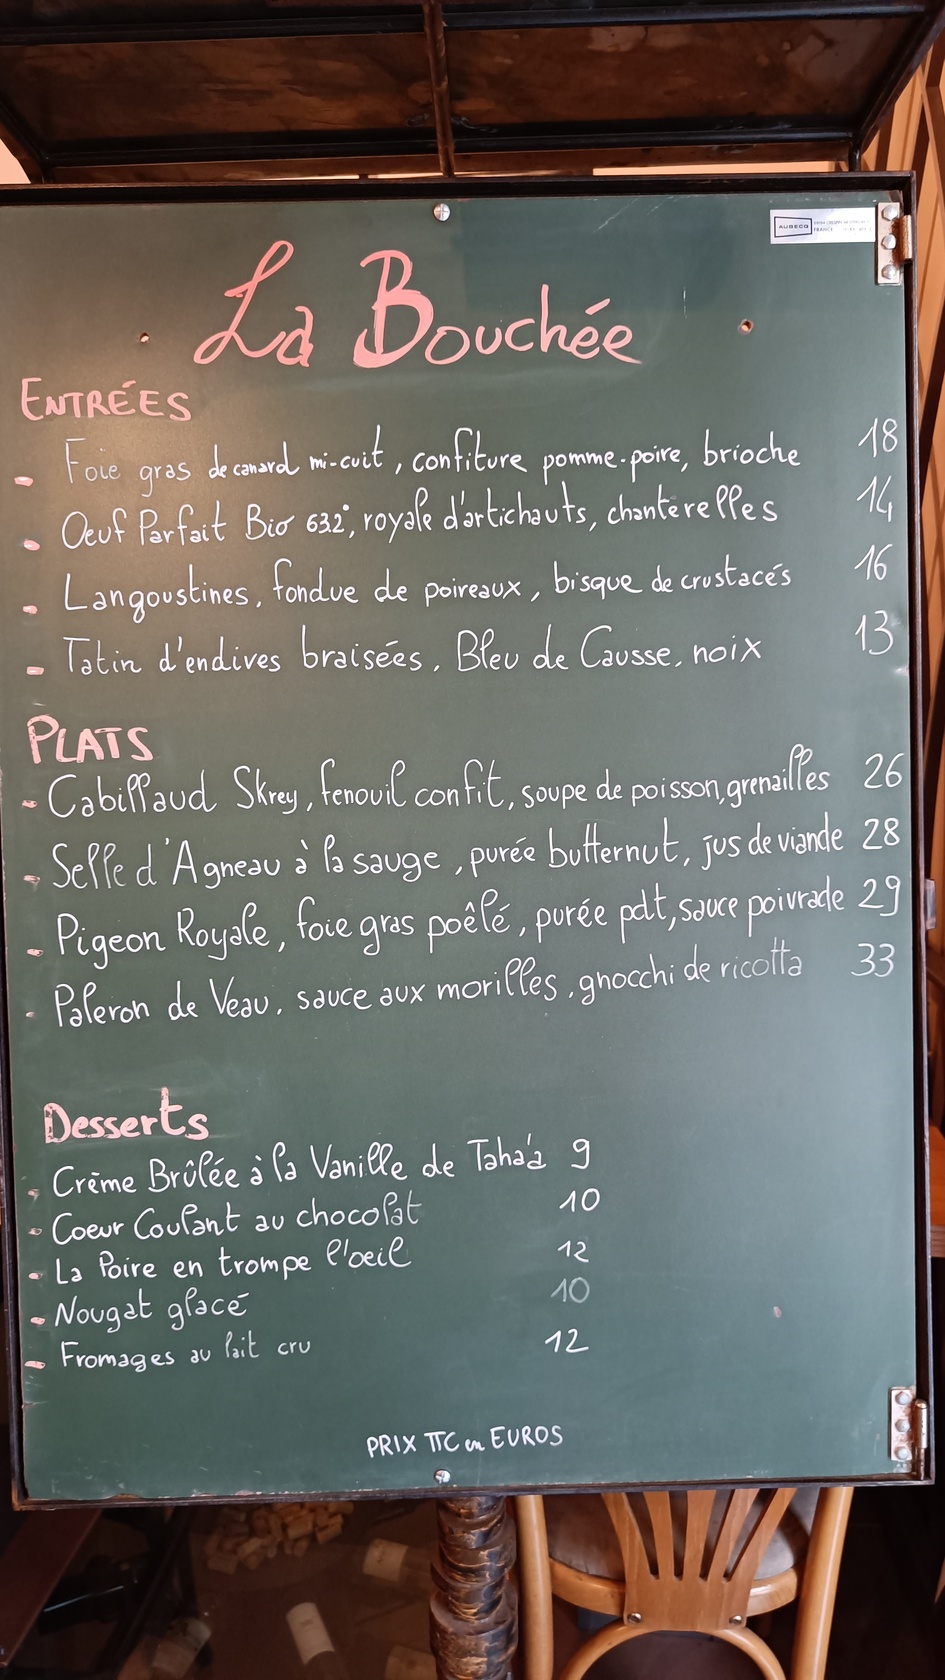 AUBECQ
FRANCE
La Bouchée
ENTRÉES
- Foie gras de canard mi-cuit, confiture pomme-poire, brioche 18
- Oeuf Parfait Bio 63.2°, royale d'artichauts, chanterelles 14
- Langoustines, fondue de poireaux, bisque de crustacés 16
- Tatin d'endives braisées, Bleu de Causse, noix 13
PLATS
- Cabillaud Skrey, fenouil confit, soupe de poisson, grenailles 26
- Selle d'Agneau à la sauge, purée butternut, jus de viande 28
- Pigeon Royale, foie gras poêlé, purée pdt, sauce poivrade 29
- Paleron de Veau, sauce aux morilles, gnocchi de ricotta 33
Desserts
- Crème Brûlée à la Vanille de Taha'a 9
- Coeur Coulant au chocolat 10
- La Poire en trompe l'oeil 12
- Nougat glacé 10
- Fromages au lait cru 12
PRIX TTC en EUROS